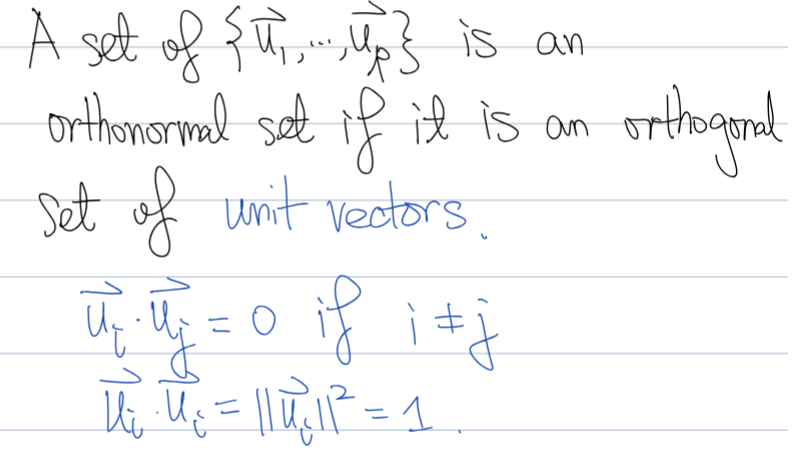 A set of {u⃗₁,...,u⃗ₚ} is an
orthonormal set if it is an orthogonal
set of unit vectors.
u⃗ᵢ · u⃗ⱼ = 0 if i ≠ j
u⃗ᵢ · u⃗ᵢ = ||u⃗ᵢ||² = 1.